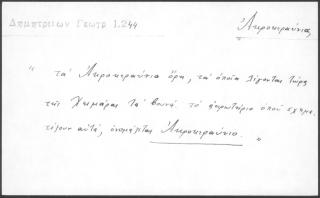 Δημητριεων Γεωγρ 1.244
Ἀκροκεραύνια,
" τὰ Ἀκροκεραύνια ὄρη, τὰ ὁποῖα λέγονται τώρα
τῆς Χειμάρας τὰ βουνά. τὸ ἀκρωτήριο ὁποὺ σχημα
τίζουν αὐτὰ, ὀνομάζεται Ἀκροκεραύνιο. "